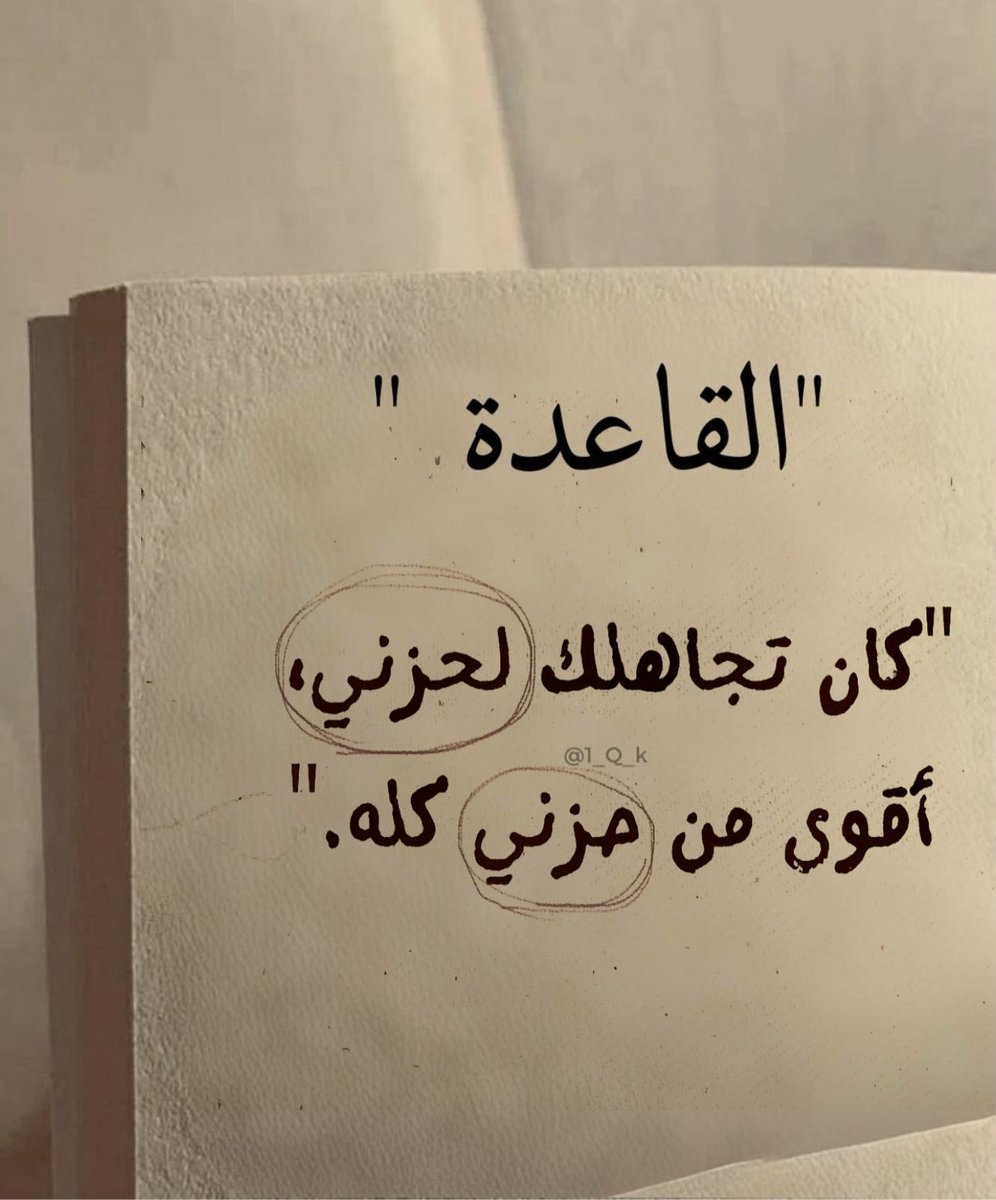 "القاعدة "
"كان تجاهلك لحزني،
@1_Q_k
أقوى من حزني كله."